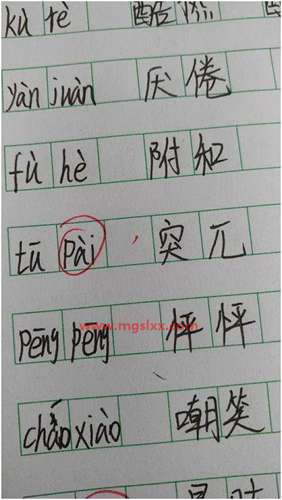 kù rè 酷热
yàn juàn 厌倦
fù hè 附和
tū pài , 突兀
www.mgslxx.com
pēng pēng 怦怦
cháo xiào 嘲笑